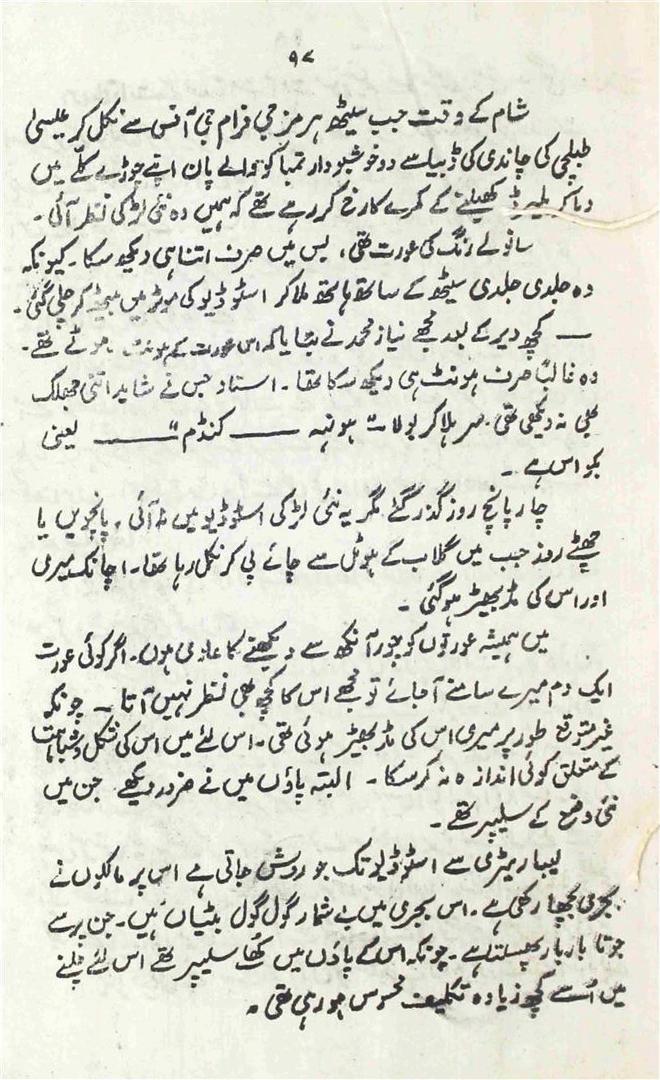 ۹۷
شام کے وقت جب سیٹھ ہرمزجی فرام جی آفس سے نکل کر عیسیٰ
طبلچی کی چاندی کی ڈبیا سے دو خوشبودار تمباکو والے پان اپنے چوڑے کلّے میں
دبا کر بلیرڈ کھیلنے کے کمرے کا رخ کر رہے تھے کہ ہمیں وہ نئی لڑکی نظر آئی۔
سانولے رنگ کی عورت تھی، بس میں صرف اتنا ہی دیکھ سکا۔ کیونکہ
وہ جلدی جلدی سیٹھ کے ساتھ ہاتھ ملا کر اسٹوڈیو کی موٹر میں بیٹھ کر چلی گئی۔
— کچھ دیر کے بعد مجھے نیاز محمد نے بتایا کہ اس عورت کے ہونٹ موٹے تھے۔
وہ غالباً صرف ہونٹ ہی دیکھ سکا تھا۔ استاد جس نے شاید اتنی جھلک
بھی نہ دیکھی تھی۔ سر ہلا کر بولا " ہونہہ —— کنڈم" —— یعنی
بکواس ہے۔
چار پانچ روز گذر گئے مگر یہ نئی لڑکی اسٹوڈیو میں نہ آئی۔ پانچویں یا
چھٹے روز جب میں گلاب کے ہوٹل سے چائے پی کر نکل رہا تھا۔ اچانک میری
اور اس کی مڈبھیڑ ہو گئی۔
میں ہمیشہ عورتوں کو چور آنکھ سے دیکھنے کا عادی ہوں۔ اگر کوئی عورت
ایک دم میرے سامنے آ جائے تو مجھے اس کا کچھ بھی نظر نہیں آتا۔ چونکہ
غیر متوقع طور پر میری اس کی مڈبھیڑ ہوئی تھی۔ اس لئے میں اس کی شکل و شباہت
کے متعلق کوئی اندازہ نہ کر سکا۔ البتہ پاؤں میں نے ضرور دیکھے جن میں
نئی وضع کے سلیپر تھے۔
لیباریٹری سے اسٹوڈیو تک جو روش جاتی ہے اس پر مالکوں نے
بجری بچھا رکھی ہے۔ اس بجری میں بے شمار گول گول بٹیاں ہیں۔ جن پر سے
جوتا بار بار پھسلتا ہے۔ چونکہ اس کے پاؤں میں کھلے سلیپر تھے اس لئے چلنے
میں اُسے کچھ زیادہ تکلیف محسوس ہو رہی تھی۔